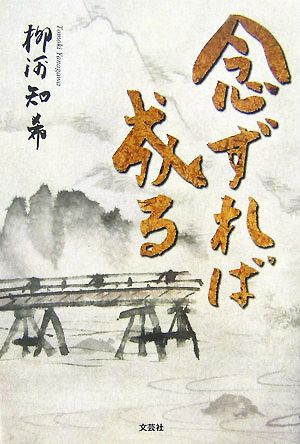 念ずれば
成る
柳河知希
Tomoki Yanagawa
文芸社